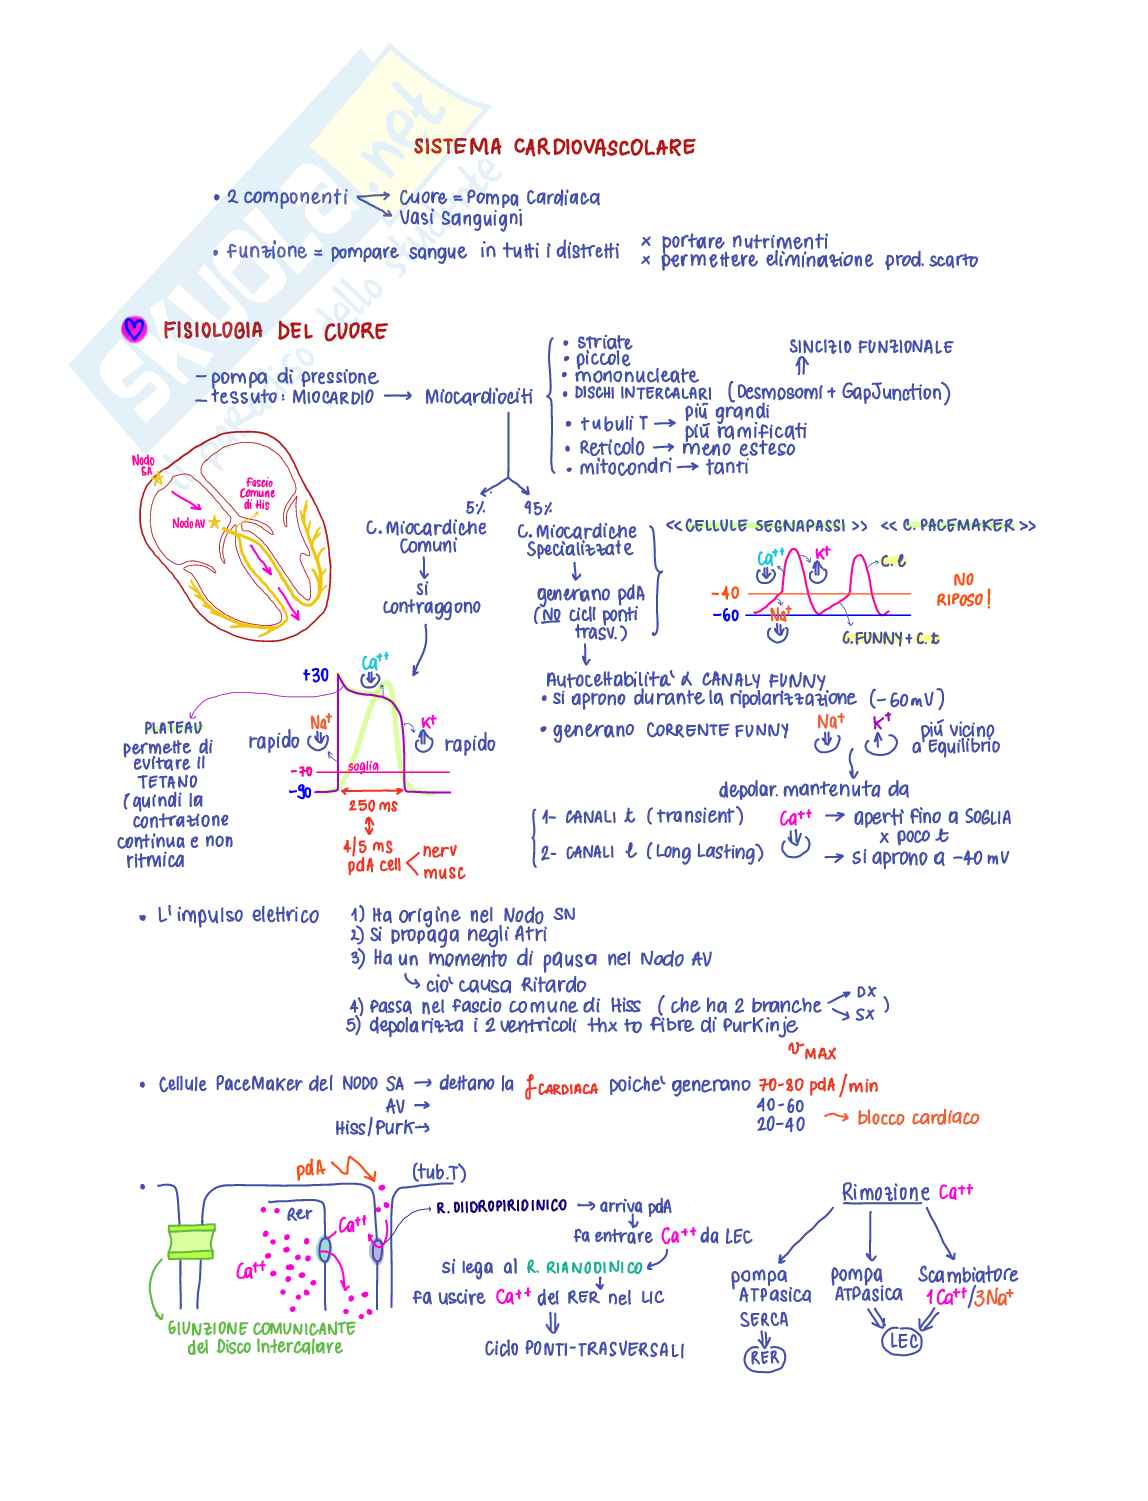 SISTEMA CARDIOVASCOLARE
• 2 componenti → Cuore = Pompa Cardiaca
→ Vasi Sanguigni
• Funzione = pompare sangue in tutti i distretti
× portare nutrimenti
× permettere eliminazione prod. scarto
FISIOLOGIA DEL CUORE
– pompa di pressione
– tessuto: MIOCARDIO → Miocardiociti
• striate
• piccole
• mononucleate
• DISCHI INTERCALARI (Desmosomi + GapJunction)
⇑
SINCIZIO FUNZIONALE
• tubuli T → piú grandi
piú ramificati
• Reticolo → meno esteso
• mitocondri → tanti
Nodo
SA
Nodo AV
Fascio
Comune
di His
5%
C. Miocardiche
Comuni
↓
si
contraggono
95%
C. Miocardiche
Specializzate
↓
generano pdA
(NO cicli ponti
trasv.)
<< CELLULE SEGNAPASSI >> << C. PACEMAKER >>
Ca++
K+
C. l
-40
-60
Na+
C. FUNNY + C. t
NO
RIPOSO!
+30
Ca++
Na+
rapido
K+
rapido
soglia
-70
-90
250 ms
↕
4/5 ms
pdA cell < nerv
musc
PLATEAU
permette di
evitare il
TETANO
(quindi la
contrazione
continua e non
ritmica
Autoeccitabilita' & CANALY FUNNY
• si aprono durante la ripolarizzazione (-60mV)
• generano CORRENTE FUNNY
Na+
K+
piú vicino
a Equilibrio
depolar. mantenuta da
1- CANALI t (transient)
2- CANALI l (Long Lasting)
Ca++
→ aperti fino a SOGLIA
× poco t
→ si aprono a -40 mV
• L'impulso elettrico
1) Ha origine nel Nodo SN
2) Si propaga negli Atri
3) Ha un momento di pausa nel Nodo AV
↳ cio' causa Ritardo
4) Passa nel fascio comune di Hiss (che ha 2 branche → DX
→ SX )
5) depolarizza i 2 ventricoli thx to fibre di PurKinje
v MAX
• Cellule PaceMaker del NODO SA → dettano la f CARDIACA poiche' generano 70-80 pdA/min
AV → 40-60
Hiss/PurK → 20-40
→ blocco cardiaco
•
pdA
(tub.T)
Rer
Ca++
Ca++
GIUNZIONE COMUNICANTE
del Disco Intercalare
R. DIIDROPIRIDINICO → arriva pdA
↓
fa entrare Ca++ da LEC
si lega al R. RIANODINICO
fa uscire Ca++ del RER nel LIC
⇓
Ciclo PONTI-TRASVERSALI
Rimozione Ca++
pompa
ATPasica
SERCA
⇓
RER
pompa
ATPasica
Scambiatore
1Ca++/3Na+
LEC
SKUOLA.net